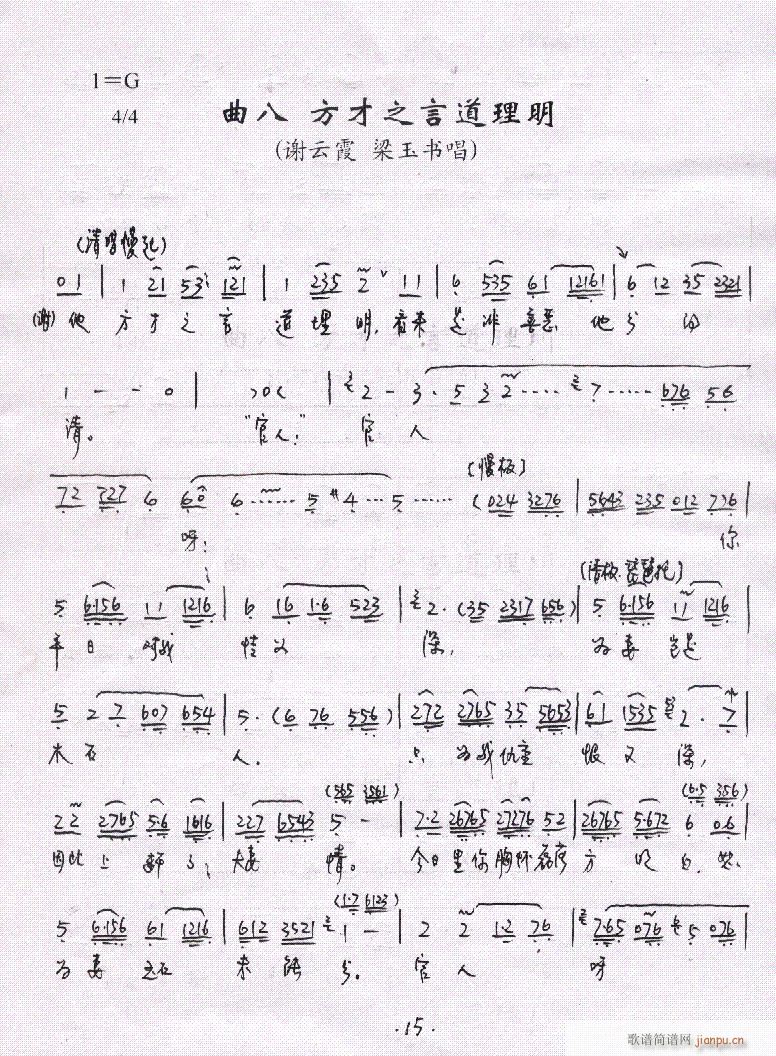 1=G
4/4
曲八 方才之言道理明
(谢云霞 梁玉书唱)
(清唱慢起)
0 1 | 1 21 53 121 | 1 235 2 11 | 6 535 61 12161 | 6 12 35 2321 |
(谢) 他 方 才 之 言 道 理 明, 看来 是 非 善恶 他 分 的
1 - - 0 | >0< | 2 - 3 · 5 3 2 ···· 7 ····· 676 56
清。 "官人:" 官 人
72 727 6 60 6 ······ 5 #4 ··· 5 ······ (024 3276 | 5643 235 012 776 |
(慢板)
呀: 你
5 6·156 11 1216 | 6 16 1·6 523 | 2·(35 2317 656) | 5 6·156 11 1216 |
平 日 对我 情 义 深, 为 妻 岂是
5 2 7 607 654 | 5·(6 76 556) | 272 2765 35 5653 | 61 1535 2·7 |
木 石 人. 只 为我 仇重 恨 又 深,
(565 3561) (6·5 356)
22 2765 5·6 1616 | 227 6543 5 - | 7·2 26765 27276 52 | 26765 5·672 6 0·6 |
因此 上 夫妻 情。 今日 里 你 胸怀 方 明 白,
(1·7 6123)
5 6·156 61 1216 | 612 3521 1 - | 2 2 1·2 76 | 7·65 076 5 076 |
为 妻 未 能 分。 官 人 呀
·15.
歌谱简谱网 jianpu.cn